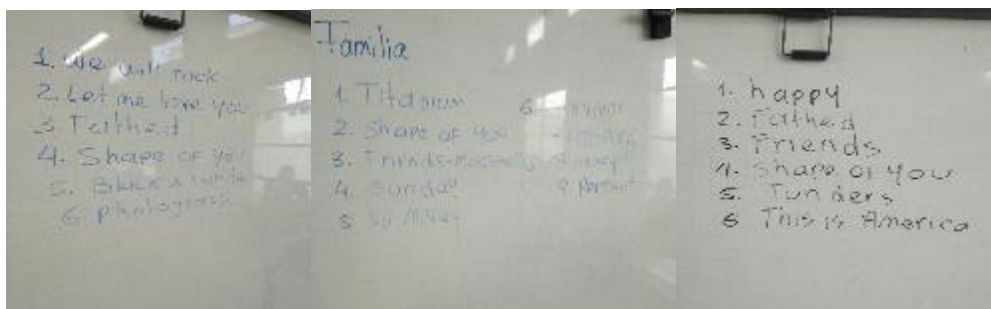 1. We will rock
2. Let me love you
3. Faithed
4. Shape of you
5. Black & white
6. photograph
Familia
1. Titanium
2. Shape of you
3. Friends-Marshmello
4. Sunday
5
6
9. Perfect
1. happy
2. Faithed
3. Friends
4. Shape of you
5. Tunders
6 This is America